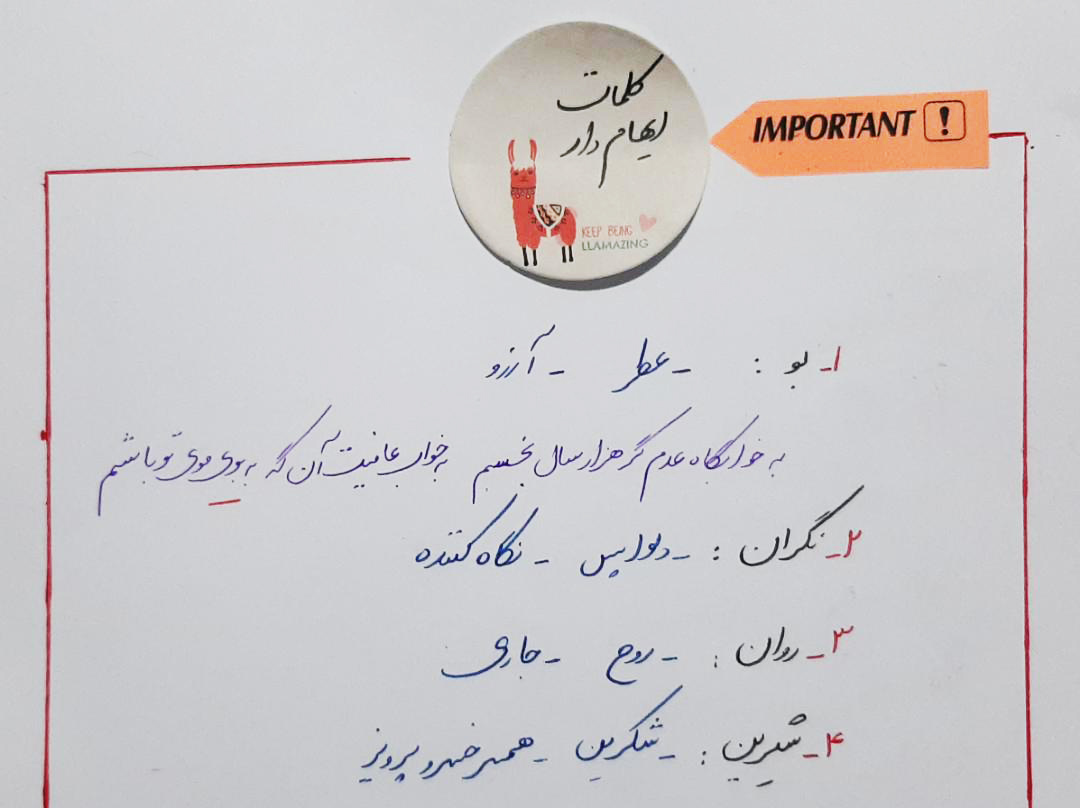 کلمات
ایهام دار
IMPORTANT !
KEEP BEING
LLAMAZING
۱- بو : - عطر - آرزو
به خوابگاه عدم گر هزار سال بخسبم به خواب عافیت آن گه به بوی موی تو باشم
۲- نگران : - دلواپس - نگاه کننده
۳- روان : - روح - جاری
۴- شیرین : - شکرین - همسر خسرو پرویز